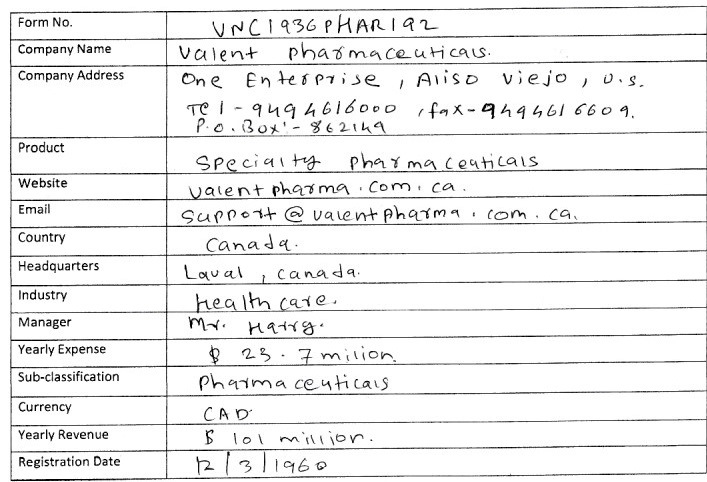 Form No. VNC1936PHAR192
Company Name Valent Pharmaceuticals.
Company Address One Enterprise, Aliso Viejo, U.S.
Tel - 9494616000, fax - 9494616609.
P.O.Box:- 862149
Product Specialty Pharmaceuticals
Website valentpharma.com.ca.
Email support@valentpharma.com.ca.
Country Canada.
Headquarters Laval, Canada.
Industry Healthcare.
Manager Mr. Harry.
Yearly Expense $ 23.7 milion.
Sub-classification Pharmaceuticals
Currency CAD
Yearly Revenue $ 101 million.
Registration Date 12/3/1960